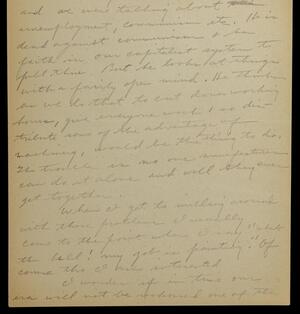 and we were talking about
unemployment, communism etc. He is
dead against communism & has
faith in our capitalist system to
pull thru. But he looks at things
with a fairly open mind. He thinks
as we do that to cut down working
hours, give everyone work & so dis-
tribute some of the advantage of
machinery, would be the thing to do.
The trouble is no one manufacturer
can do it alone and will they ever
get together.
When I get to mulling around
with those problems I usually
come to the point when I say "what
the hell! my job is painting". Of
course tho I am interested
I wonder if in time our
era will not be reckoned one of the